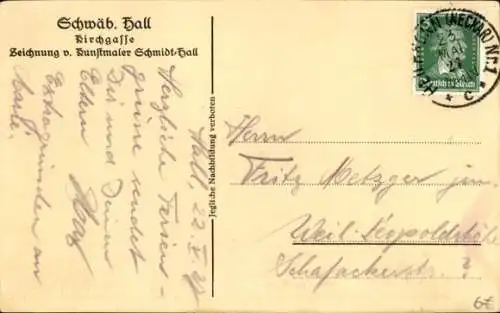 Schwäb. Hall
Kirchgasse
Zeichnung v. Kunstmaler Schmidt-Hall
Hall, 22. V. 27
Herzliche Ferien-
grüße sendet
Dir und Deinen
Eltern
Extragrüße an
Jegliche Nachbildung verboten
HEILBRONN (NECKAR) Nr. 1
MAI
27
* C *
Deutsches Reich
Herrn
Fritz Metzger jun.
Weil-Leopoldshöhe
Schafackerstr. ?
6€